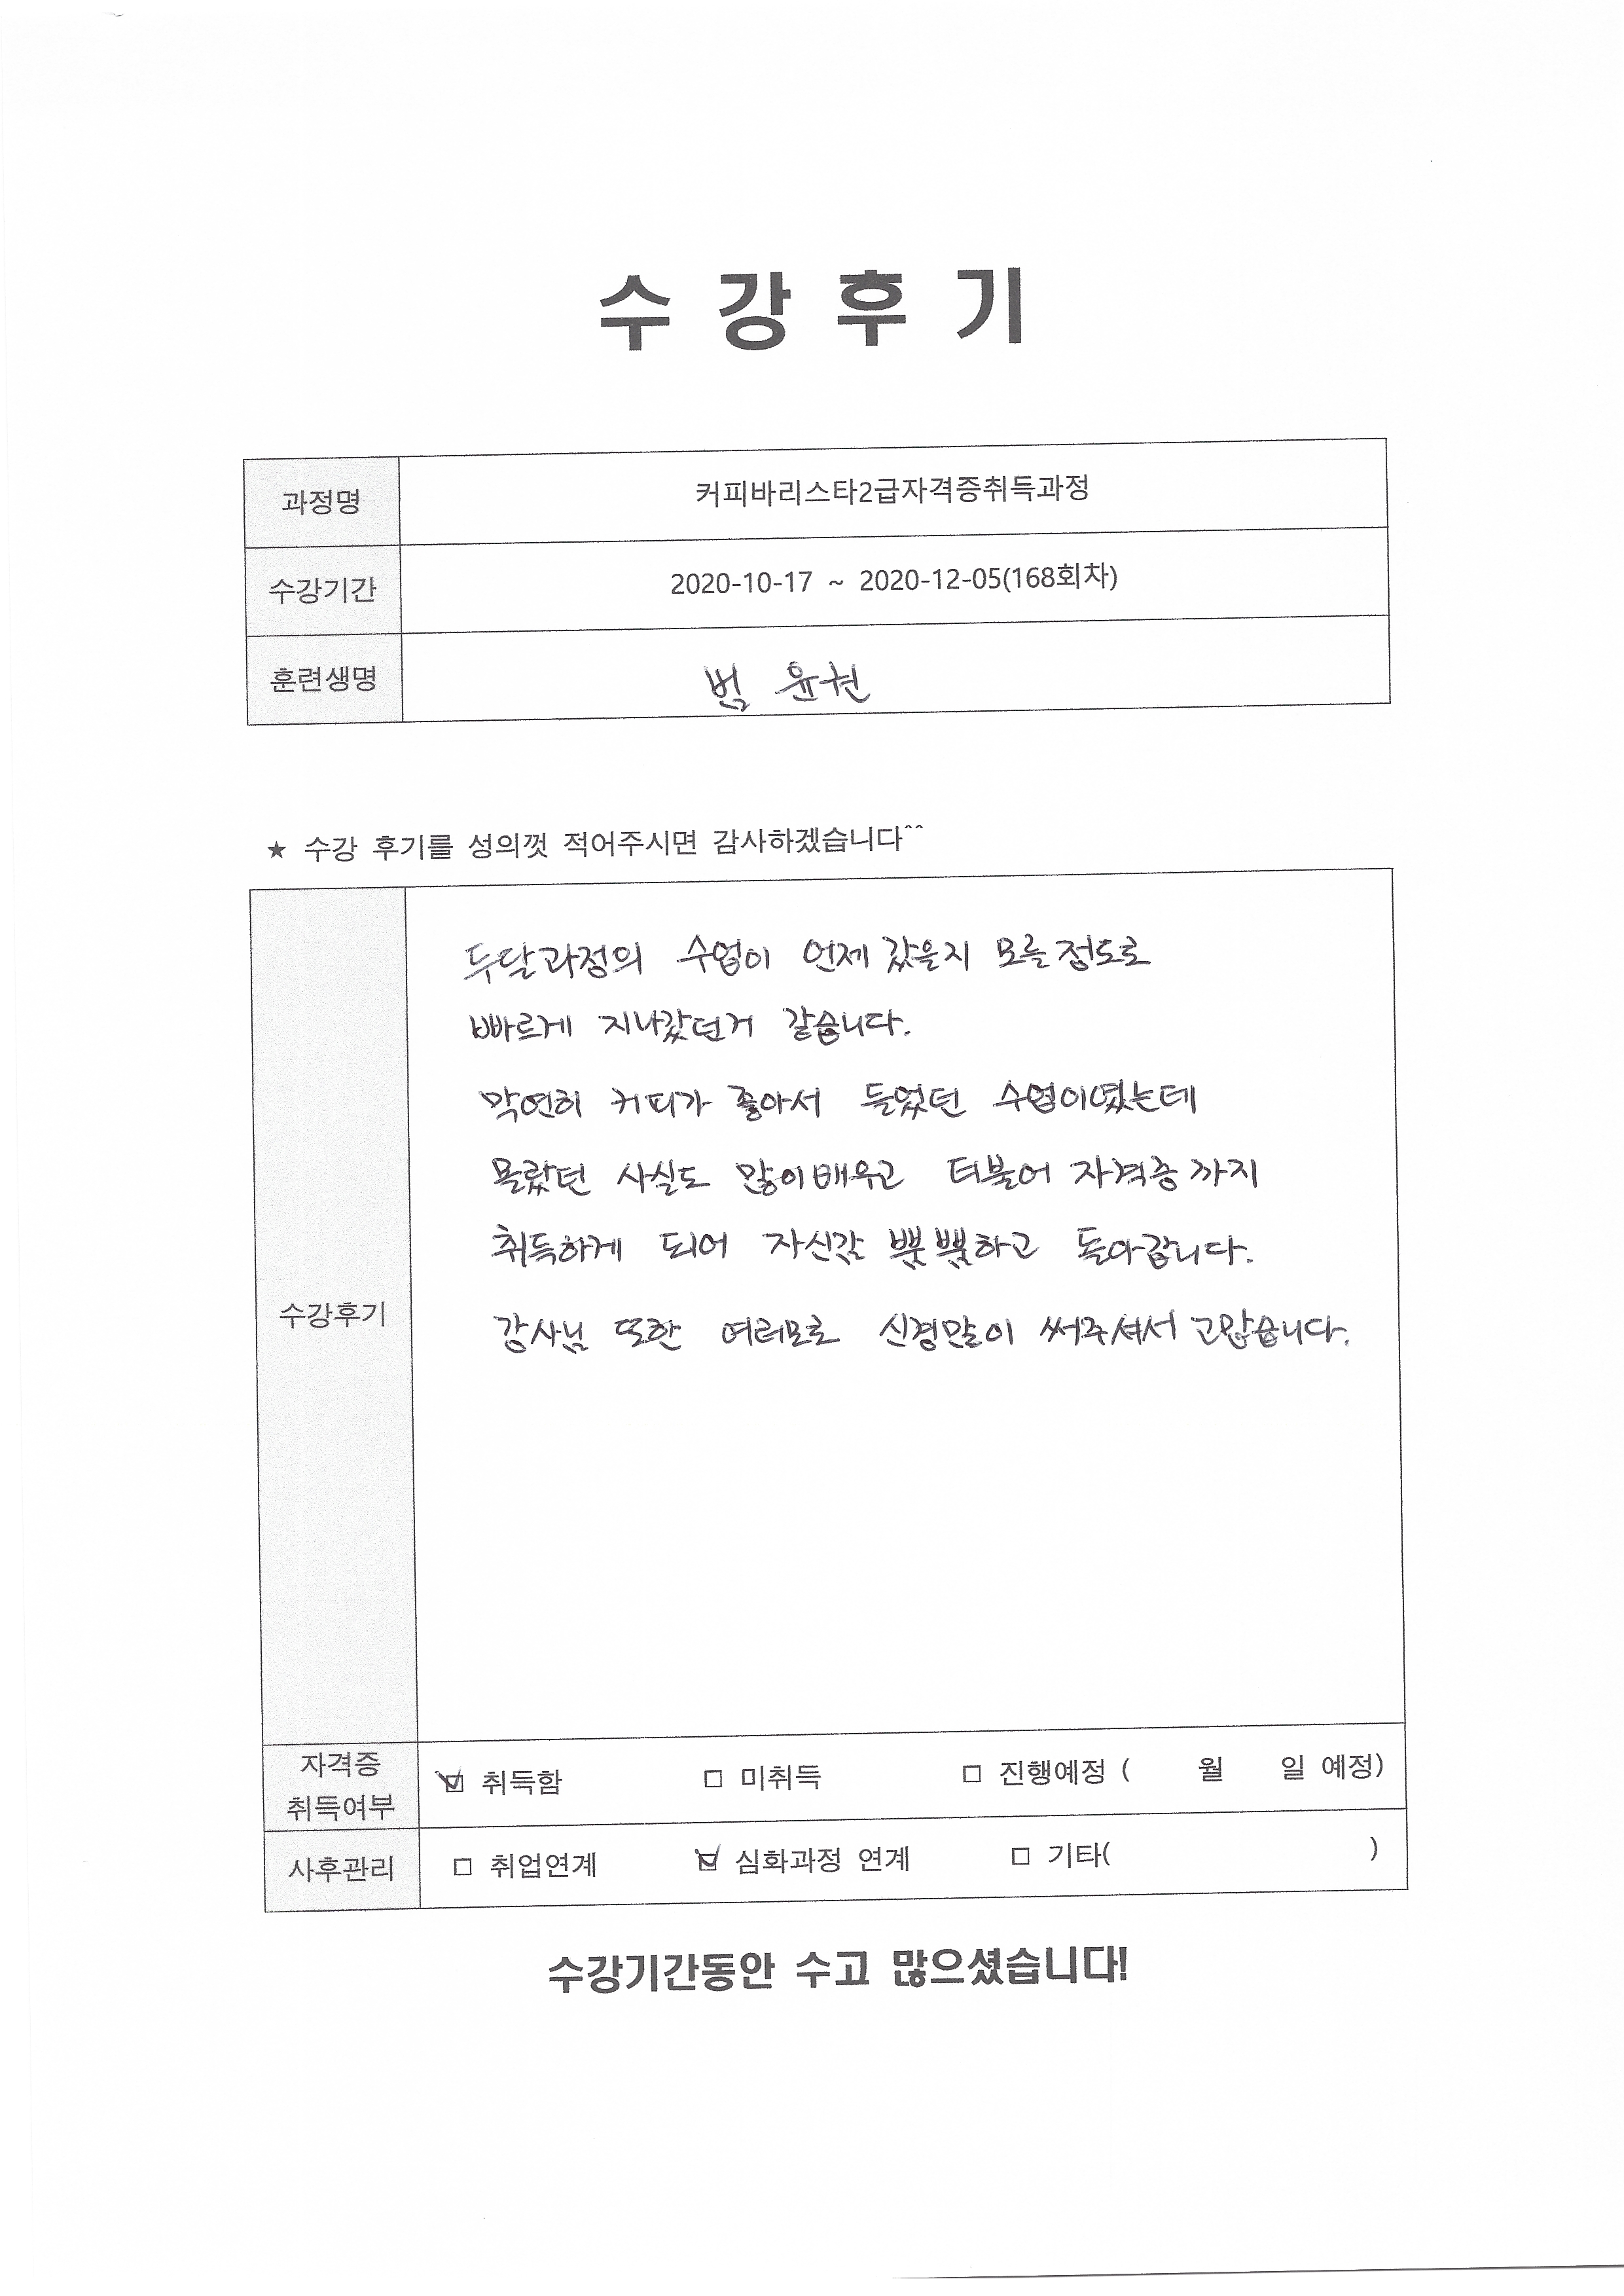 수 강 후 기
과정명 커피바리스타2급자격증취득과정
수강기간 2020-10-17 ~ 2020-12-05(168회차)
훈련생명 범 윤헌
★ 수강 후기를 성의껏 적어주시면 감사하겠습니다^^
두달과정의 수업이 언제 갔을지 모를정도로
빠르게 지나갔던거 같습니다.
막연히 커피가 좋아서 들었던 수업이였는데
몰랐던 사실도 많이배우고 더불어 자격증까지
취득하게 되어 자신감 뿜뿜하고 돌아갑니다.
수강후기
강사님 또한 여러모로 신경많이 써주셔서 고맙습니다.
자격증
취득여부
☑ 취득함 □ 미취득 □ 진행예정 ( 월 일 예정)
사후관리 □ 취업연계 ☑ 심화과정 연계 □ 기타( )
수강기간동안 수고 많으셨습니다!